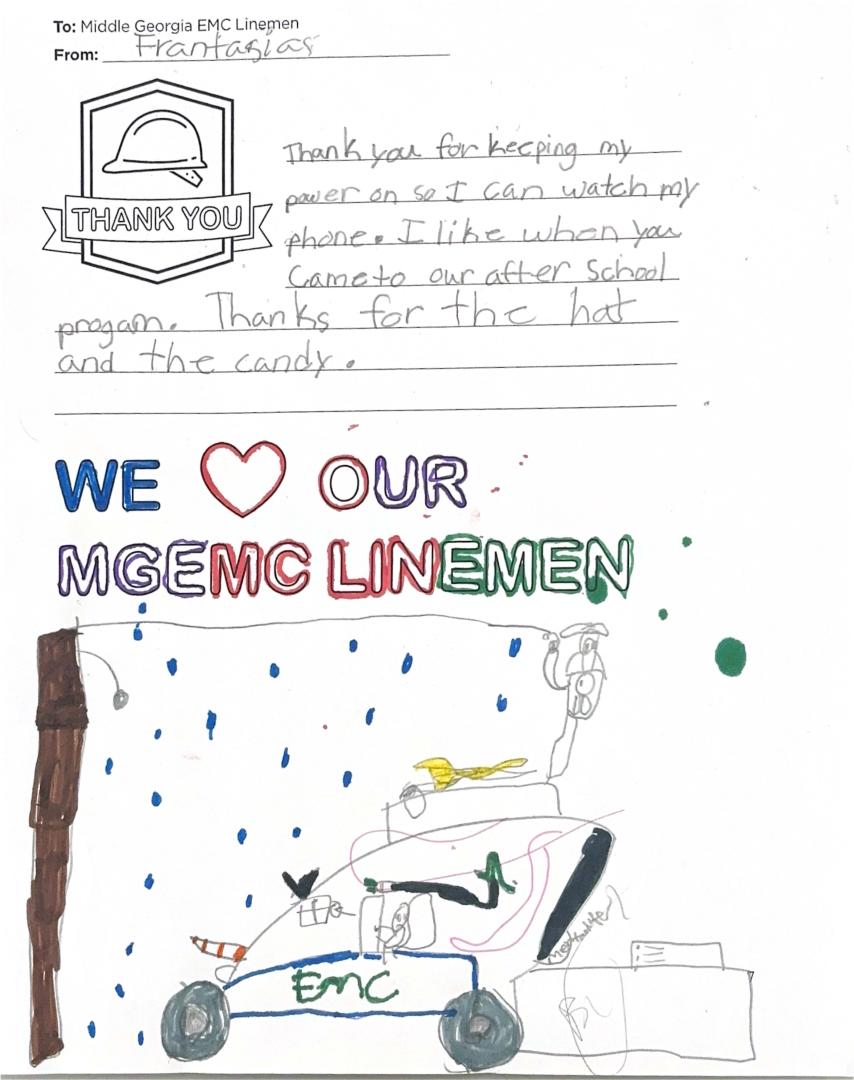 To: Middle Georgia EMC Linemen
From: Frantasias
THANK YOU
Thank you for keeping my
power on so I can watch my
phone. I like when you
came to our after school
progam. Thanks for the hat
and the candy.
WE ♥ OUR
MGEMC LINEMEN
EMC